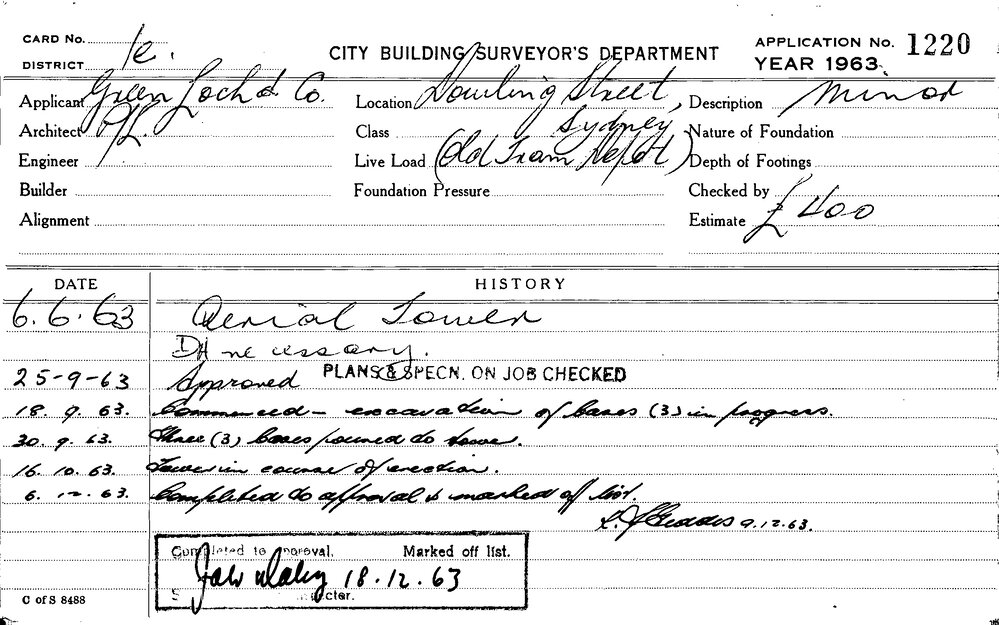 CARD No. 1e.
DISTRICT
CITY BUILDING SURVEYOR'S DEPARTMENT
APPLICATION No. 1220
YEAR 1963
Applicant Green Loch & Co.
Architect P/L.
Engineer
Builder
Alignment
Location Dowling Street,
Class Sydney
Live Load (Old Tram Depot)
Foundation Pressure
Description Minor
Nature of Foundation
Depth of Footings
Checked by
Estimate £400
DATE HISTORY
6.6.63 Aerial Tower
DH necessary.
25-9-63 Approved PLANS & SPECN. ON JOB CHECKED
18.9.63. Commenced - excavation of bases (3) in progress.
30.9.63. Three (3) bases poured to tower.
16.10.63. Tower in course of erection.
6.12.63. Completed to approval & marked off list.
Geddes 9.12.63.
Completed to approval. Marked off list.
18.12.63
C of S 8488